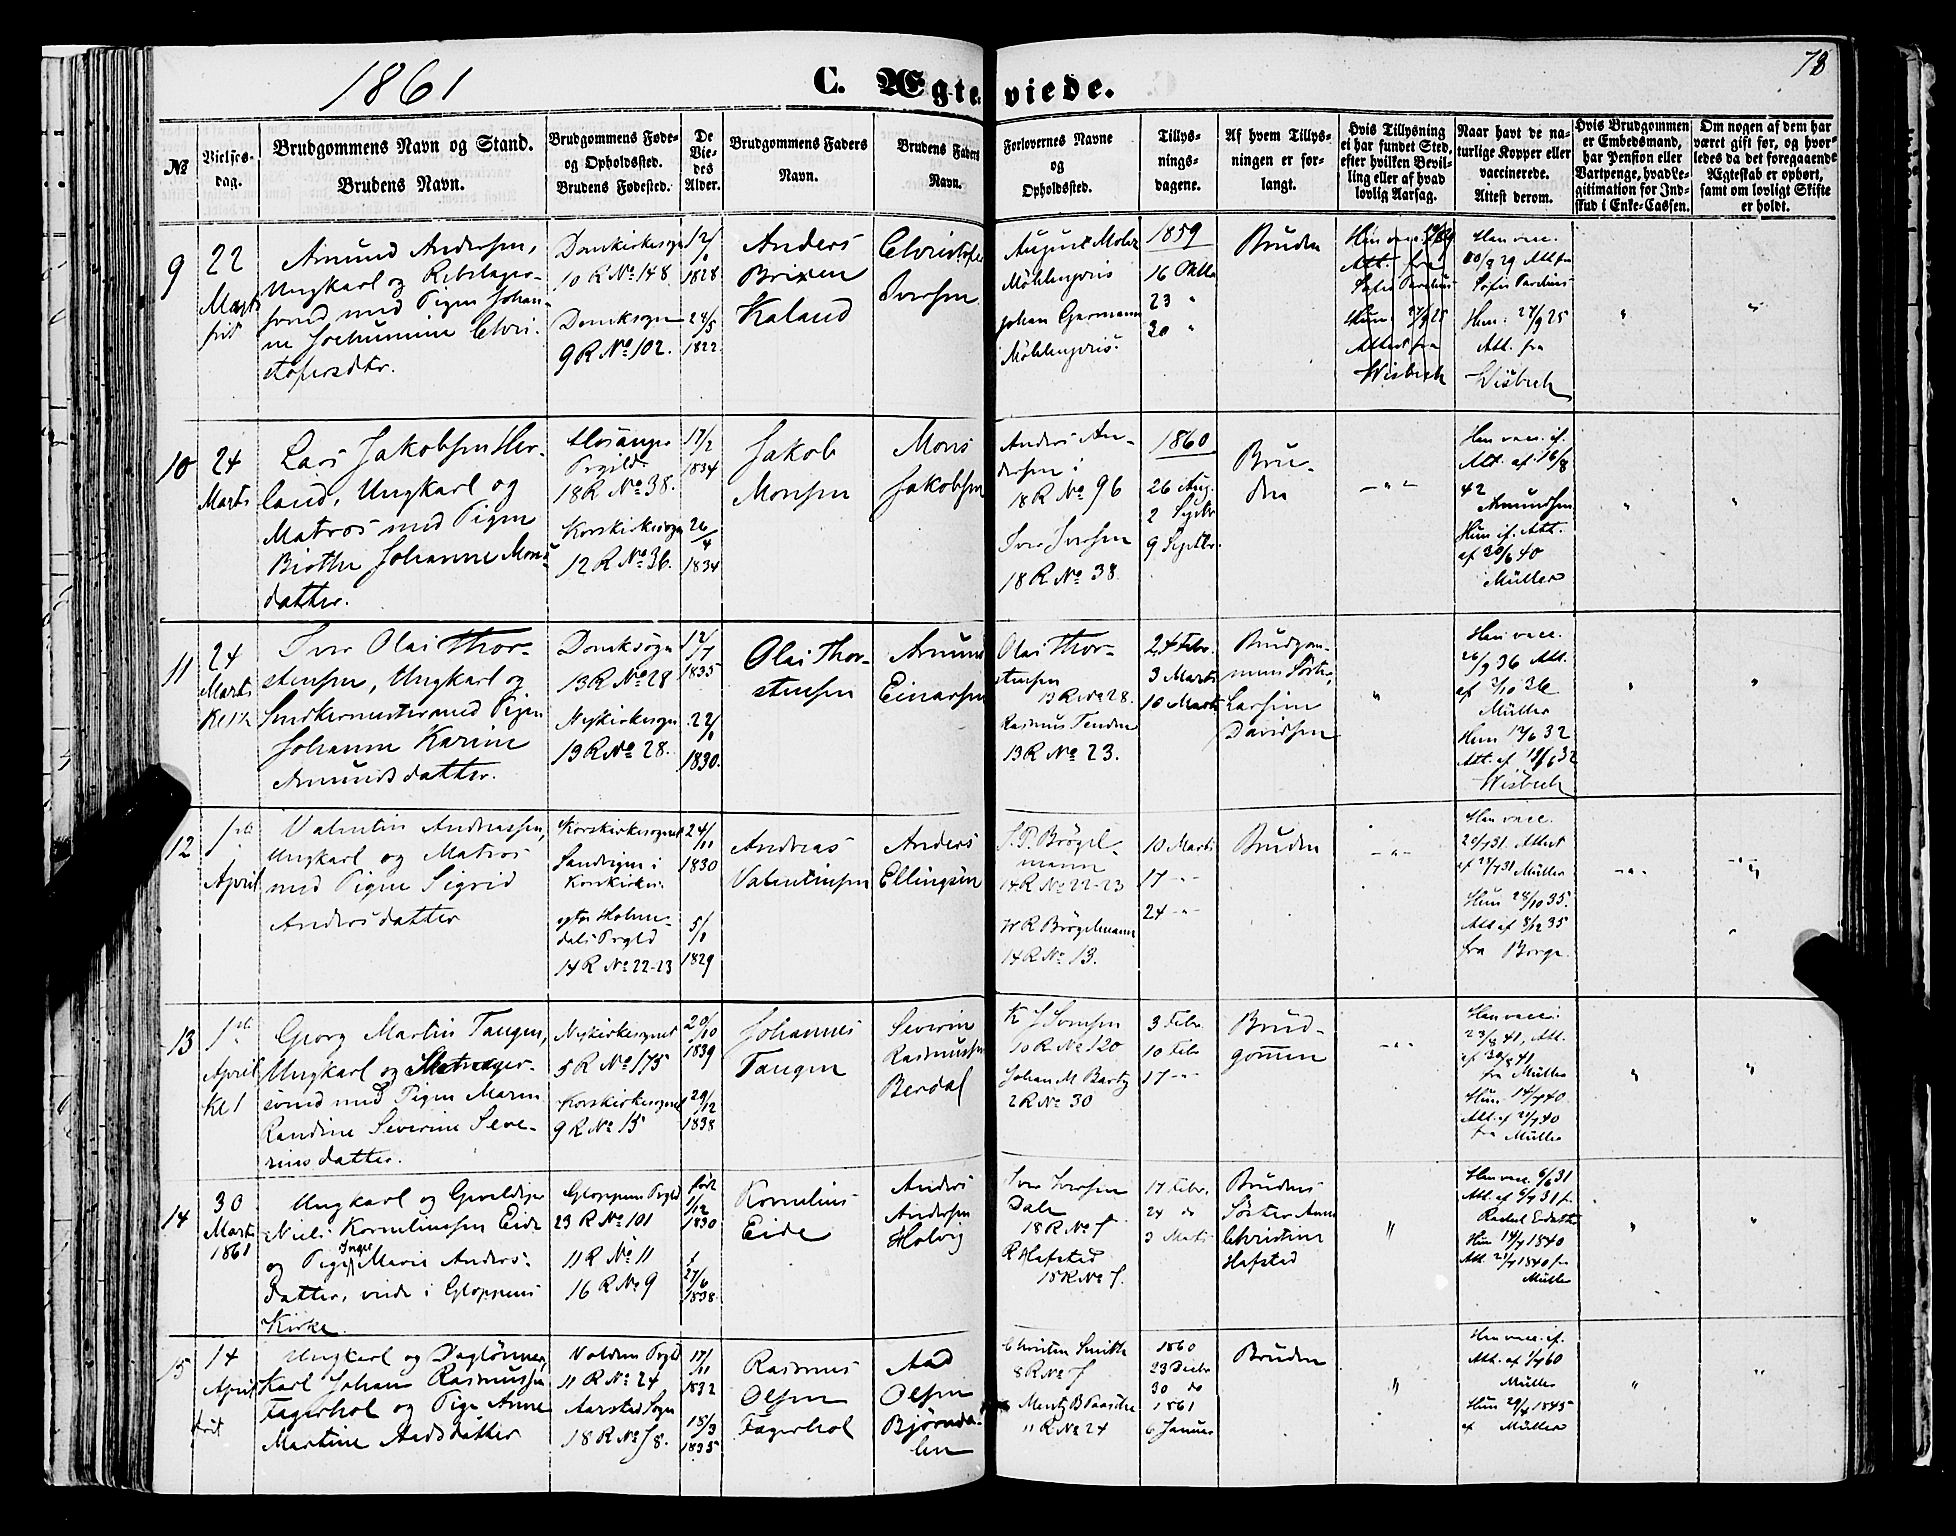 1861
C. Ægteviede.
78
No
Vielses-
dag.
Brudgommens Navn og Stand.
Brudens Navn.
Brudgommens Føde-
og Opholdssted.
Brudens Fødested.
De
Vie-
des
Alder.
Brudgommens Faders
Navn.
Brudens Faders
Navn.
Forlovernes Navne
og
Opholdssted.
Tillys-
nings-
dagene.
Af hvem Tillys-
ningen er for-
langt.
Hvis Tillysning
ei har fundet Sted,
efter hvilken Bevil-
ling eller af hvad
lovlig Aarsag.
Naar havt de na-
turlige Kopper eller
vaccinerede.
Attest derom.
Hvis Brudgommen
er Embedsmand,
har Pension eller
Vartpenge, hvad Le-
gitimation for Ind-
skud i Enke-Cassen.
Om nogen af dem har
været gift før, og hvor-
ledes da det foregaaende
Ægteskab er ophørt,
samt om lovligt Skifte
er holdt.
9
22
Marts
frit
Amund Andersen,
Ungkarl og Rebslager-
svend med Pigen Johan-
ne Christ-
ofersdtr.
Domkirkesogn
10 R No 148.
Domksogn
9 R No 102.
1828
24/5
1822
Anders
Brixen
Kaland
Christofer
Iversen
August Mohr
Johan Garmann
1859
16 Oktbr
23 "
30 "
Bruden
Han vacc.
Att. fra
Hun 27/9 25
Attest fra
Wisbech
Han vacc.
Hun. 27/9 25
Att. fra
Wisbech
"
"
10
24
Marts
Lars Jakobsen Her-
land, Ungkarl og
Matros med Pigen
Birthe Johanne Mons-
datter.
Hosanger
Prgild
18 R No 38.
Korskirkesogn
12 R No 36.
17/2
1834
26/4
1834
Jakob
Monsen
Mons
Jakobsen
Anders An-
dersen i
18 R No 96
Iver Iversen
18 R No 38.
1860
26 Aug.
2 Septbr
9 Septbr.
Bru-
den
- " -
Han vacc. if.
Att. af 16/8
42
Amundsen
Hun if. Att.
af 30/6 40
Müller
"
"
11
24
Marts
Kl 12
Iver Olai Thor-
stensen, Ungkarl og
Snedkermester med Pigen
Johanne Karine
Amundsdatter.
Domksogn
13 R No 28
Nykirkesogn
13 R No 28.
1835
1830.
Olai Thor-
stensen
Amund
Einarsen
Olai Thor-
stensen
13 R No 28.
Rasmus Tenden
13 R No 23.
24 Febr.
3 Marts
10 Marts
Brudgom-
mens Søster,
Larsine
Davidsen
"
Han vacc.
26/9 36 Att.
af 3/10 36
Müller
Hun 12/6 32
Att. af 18/6 32
Wisbech
"
"
12
1ste
April
Valentin Andreassen,
Ungkarl og Matros
med Pigen Sigrid
Andersdatter
Korskirkesognet
Sandvigen i
Korskirkes.
Holme-
dals Prgld
14 R No 22-23
24/11
1830
5/8
1829
Andreas
Valentinsen
Anders
Ellingsen
S. P. Brøgel-
mann
14 R No 22-23
W R Brøgelmann
14 R No 13.
10 Marts
17 - " -
24 - " -
Bruden
- " -
Han vacc.
20/7 31. Attest
af 27/7 31 Müller
Hun 28/10 35.
Att af 8/12 35
fra Borge.
- " -
- " -
13
1ste
April
Kl 1
Georg Martin Tangen,
Ungkarl og
svend med Pigen Maren
Randine Severine Seve-
rinsdatter.
Nykirkesognet
5 R No 175
Korskirkesognet
9 R No 15
20/10
1839
29/12
1838
Johannes
Tangen
Severin
Rasmussen
Berdal
10 R No 120
Johan M
2 R No 30
3 Febr.
10 Febr
17 - " -
Brud-
gommen
- " -
Han vacc.
23/8 41, Att.
af 30/8 41
fra Müller
Hun 14/7 40
Att. af 21/7 40
fra Müller
"
"
14
30
Marts
1861
Ungkarl og Gevaldiger
Niels Kornelinssen Eide
og Pige Inger Marie Anders-
datter, viede i Gloppens
Kirke.
Gloppens Prgld
23 R No 101
11 R No 11
16 R No 9
født
1/12
1830
27/6
1838.
Kornelius
Eide
Anders
Andersen
Holvig
Iver Iversen
Dale
18 R No
R Hafstad
18 R No
17 Febr.
24 do
3 Marts
Brudens
Søster Anne
Christine
Hafstad
"
Han vacc. 6/31
Att. af
Hun 14/7 1840
Att. 21/7 1840 fr
Müller
"
"
15
14
April
frit
Ungkarl og Daglønner,
Karl Johan Rasmussen
Fagerhol og Pige Anne
Martine Aadsdatter
Volden Prgld
11 R No 24
Aarstad Sogn
18 R No 78.
17/11
1832
18/3
1835
Rasmus
Olsen
Fagerhol
Aad
Olsen
Bjørnda-
len
Christen Smith
8 R No
Mentz B Paasche
11 R No 24
1860
23 Decbr
30 do
1861
6 Januar
Bruden
"
Han vacc. if.
Att. af 1/7 60
Müller
Hun 29/4 1845
af Müller
"
"